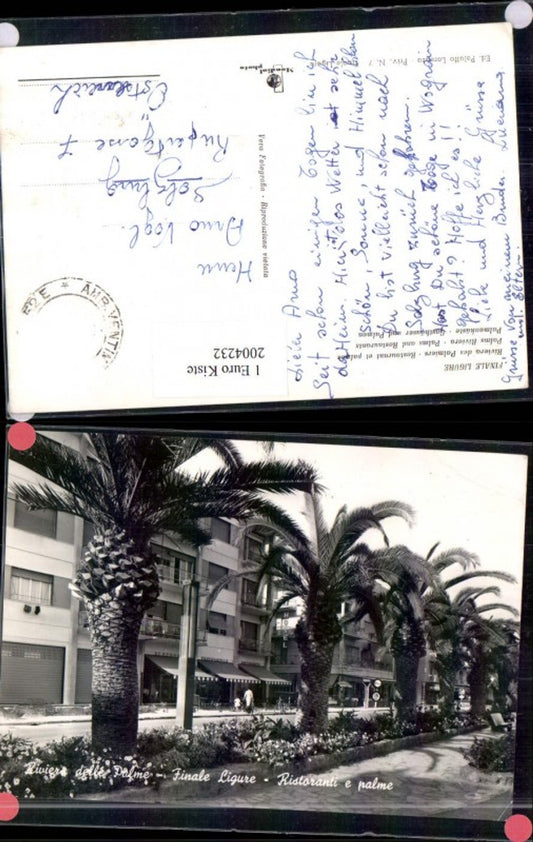 Lieber Arno
Seit schon einigen Tagen bin ich
daheim. Hier ist das Wetter sehr
schön, Sonne, und Himmel
Du bist vielleicht schon nach
Salzburg zurück gefahren.
Hast Du schöne Tage in Wagrain
gehabt? Hoffe ich es!!
Liebe und Herzliche Grüsse
Luciana
Grüsse von meinem Bruder
und Eltern.
Herrn
Arno Vogl.
Salzburg
Rupertgasse 7
Österreich
Ed. Palutto Loreto - Priv. N. 7
Vera Fotografia - Riproduzione vietata
FINALE LIGURE
Riviera des Palmiers - Restaurant et palmes
Palms Riviera - Palms and Restaurants
Palmenküste - Gasthäuser und Palmen
1 Euro Kiste
2004232
Riviera delle Palme - Finale Ligure - Ristoranti e palme